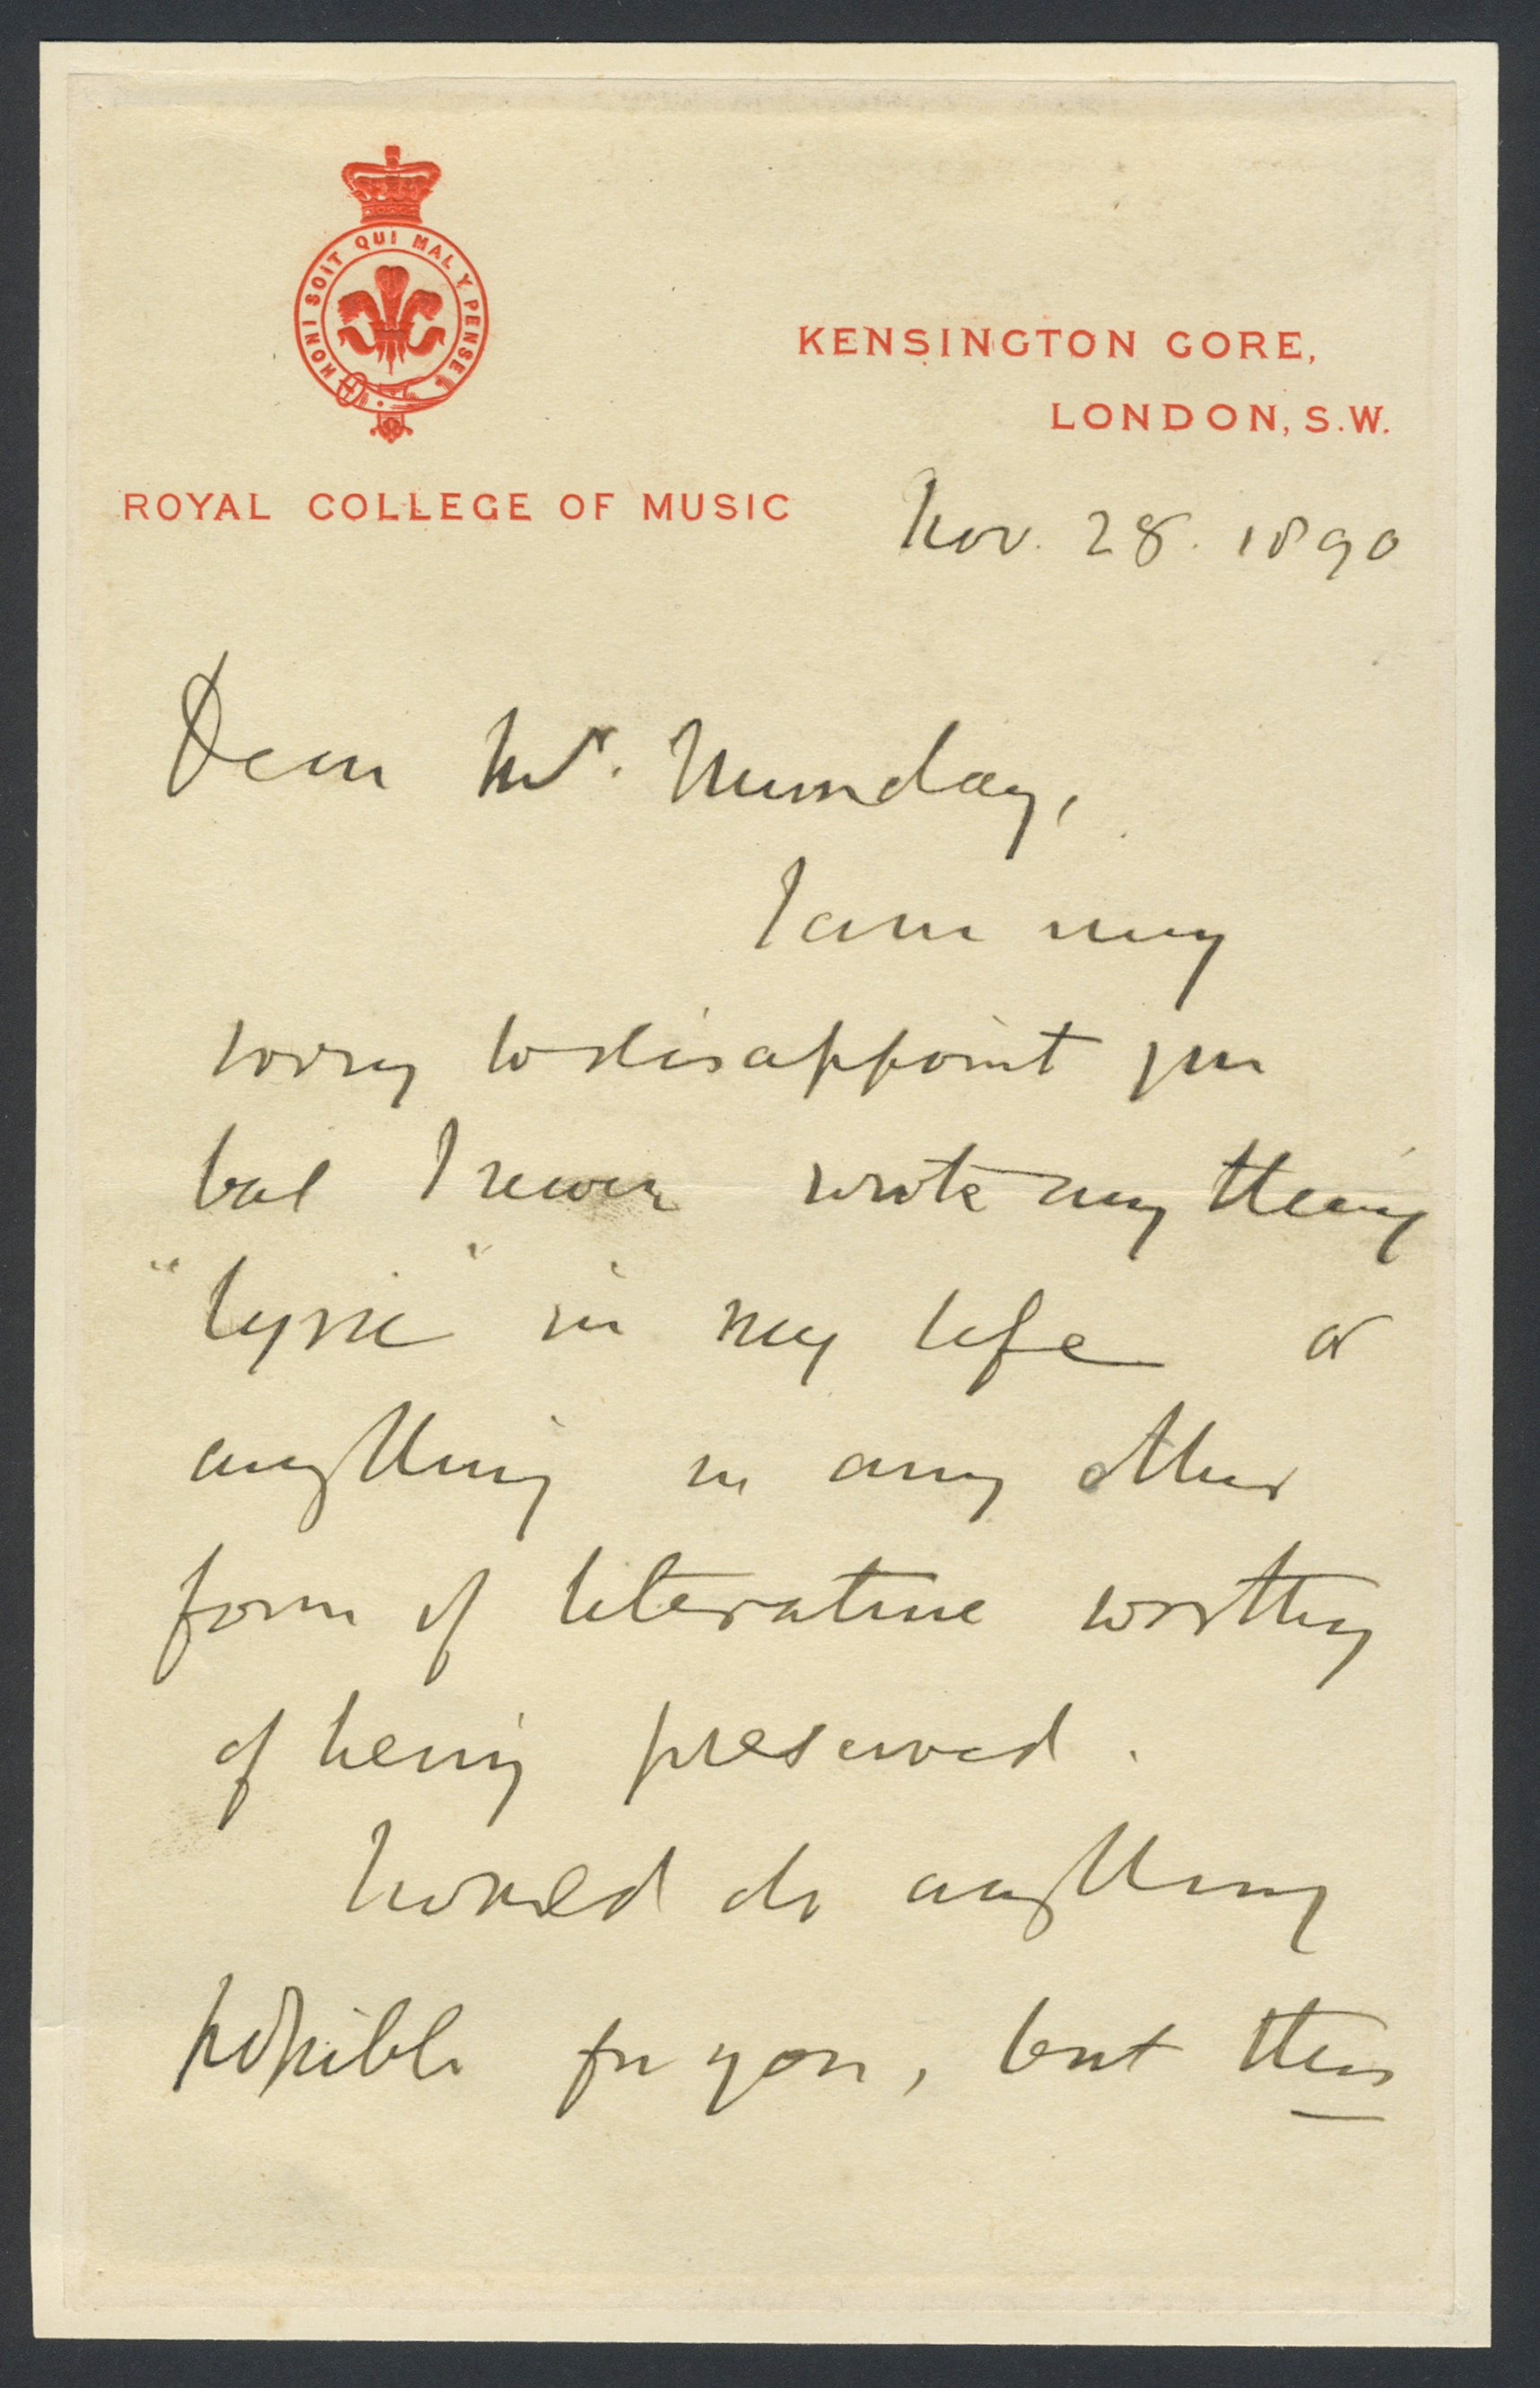 HONI SOIT QUI MAL Y PENSE
KENSINGTON GORE,
LONDON, S.W.
ROYAL COLLEGE OF MUSIC
Nov. 28. 1890
Dear Mr. Munday,
I am very
sorry to disappoint you
but I never wrote anything
"lyric" in my life or
anything in any other
form of literature worthy
of being preserved.
I would do anything
possible for you, but this